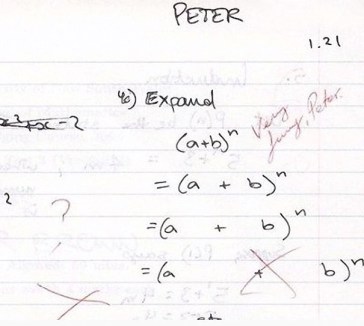 PETER
1.21
4b) Expand
x³+x-2
Very funny, Peter.
(a+b)ⁿ
= (a + b)ⁿ
2
?
=(a + b)ⁿ
=(a + b)ⁿ
etc